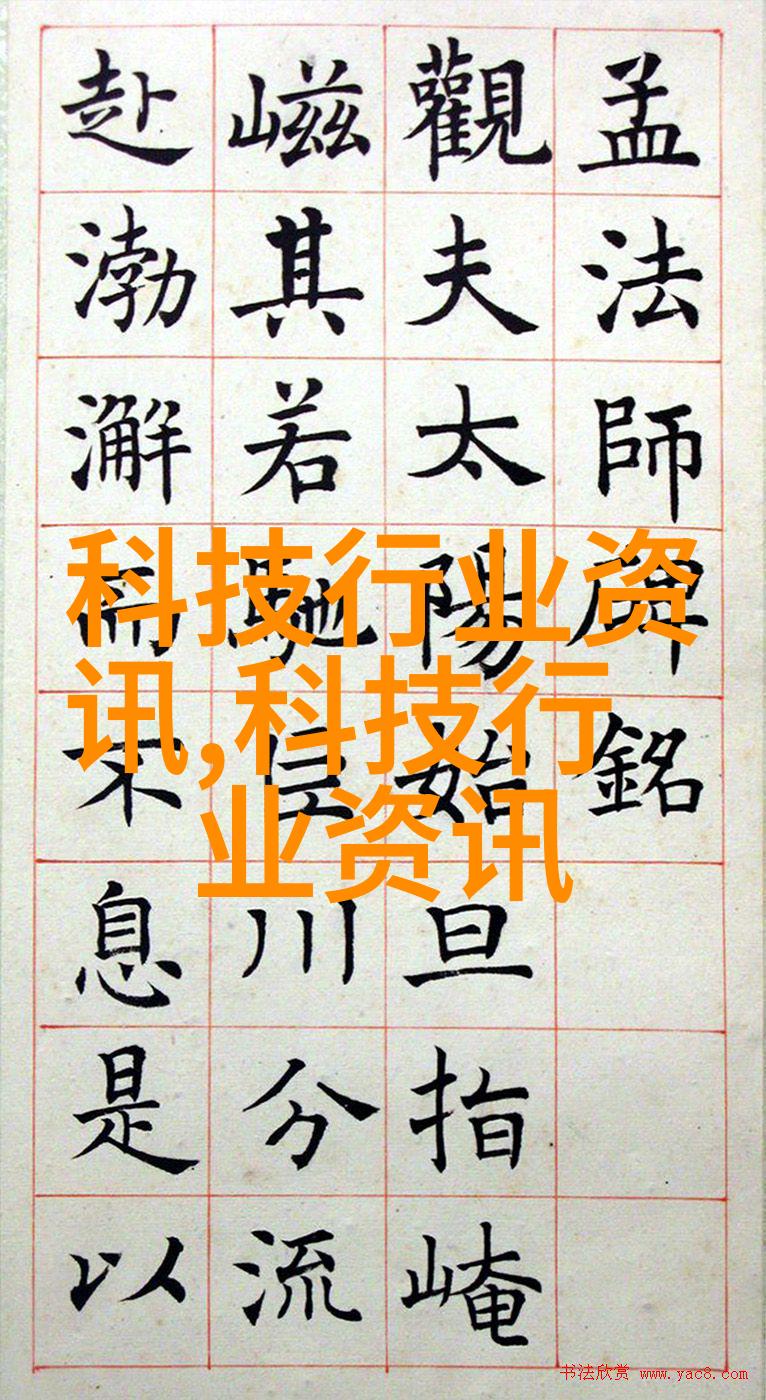 孟法師碑銘
觀夫太陽始旦指崦
嵫其若馳巨川分流
赴渤澥而不息是以
科技行业资
讯,科技行
业资讯
书法欣赏 www.yac8.com